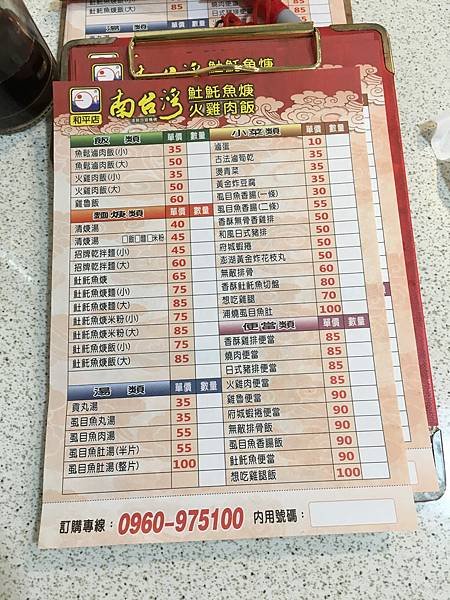 和平店
南台灣
魠魠魚焿
火雞肉飯
飯類 單價 數量
魚鬆滷肉飯(小) 35
魚鬆滷肉飯(大) 50
火雞肉飯(小) 35
火雞肉飯(大) 50
雞魯飯 60
麵焿類 單價 數量
清焿湯 40
清焿湯 □飯□麵□米粉 45
招牌乾拌麵(小) 45
招牌乾拌麵(大) 60
魠魠魚焿 65
魠魠魚焿麵(小) 75
魠魠魚焿麵(大) 85
魠魠魚焿米粉(小) 75
魠魠魚焿米粉(大) 85
魠魠魚焿飯(小) 75
魠魠魚焿飯(大) 85
湯類 單價 數量
貢丸湯 35
虱目魚丸湯 35
虱目魚肉湯 55
虱目魚肚湯(半片) 55
虱目魚肚湯(整片) 100
小菜類 單價 數量
滷蛋 10
古法滷筍乾 35
燙青菜 35
黃金炸豆腐 35
虱目魚香腸(一條) 30
虱目魚香腸(二條) 55
香酥無骨香雞排 50
和風日式豬排 50
府城蝦捲 50
澎湖黃金炸花枝丸 50
無敵排骨 60
香酥魠魠魚切盤 80
想吃雞腿 70
浦燒虱目魚肚 100
便當類 單價 數量
香酥雞排便當 85
燒肉便當 85
日式豬排便當 85
火雞肉便當 85
雞魯便當 90
府城蝦捲便當 90
無敵排骨飯 90
虱目魚香腸飯 90
魠魠魚便當 90
想吃雞腿飯 100
訂購專線：0960-975100 內用號碼：